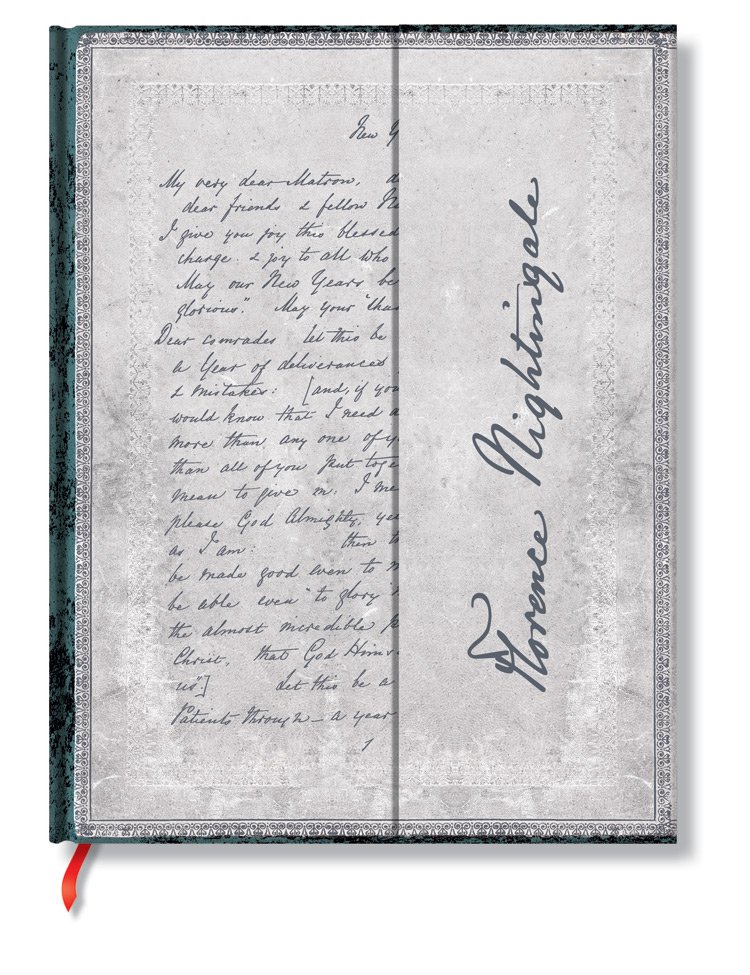 New Y
My very dear Matron, d
dear friends & fellow N
I give you joy this blessed
charge: & joy to all who
May our New Years be
glorious". May your "thus
Dear comrades let this be
a Year of deliverances
& mistakes: [and, if you
would know that I need a
more than any one of y
than all of you put toge
mean to give in. I me
please God Almighty, ye
as I am: then t
be made good even to m
be able even "to glory
the almost incredible p
Christ, that God Hims
us".] Let this be a
Patients through — a year
1
Florence Nightingale